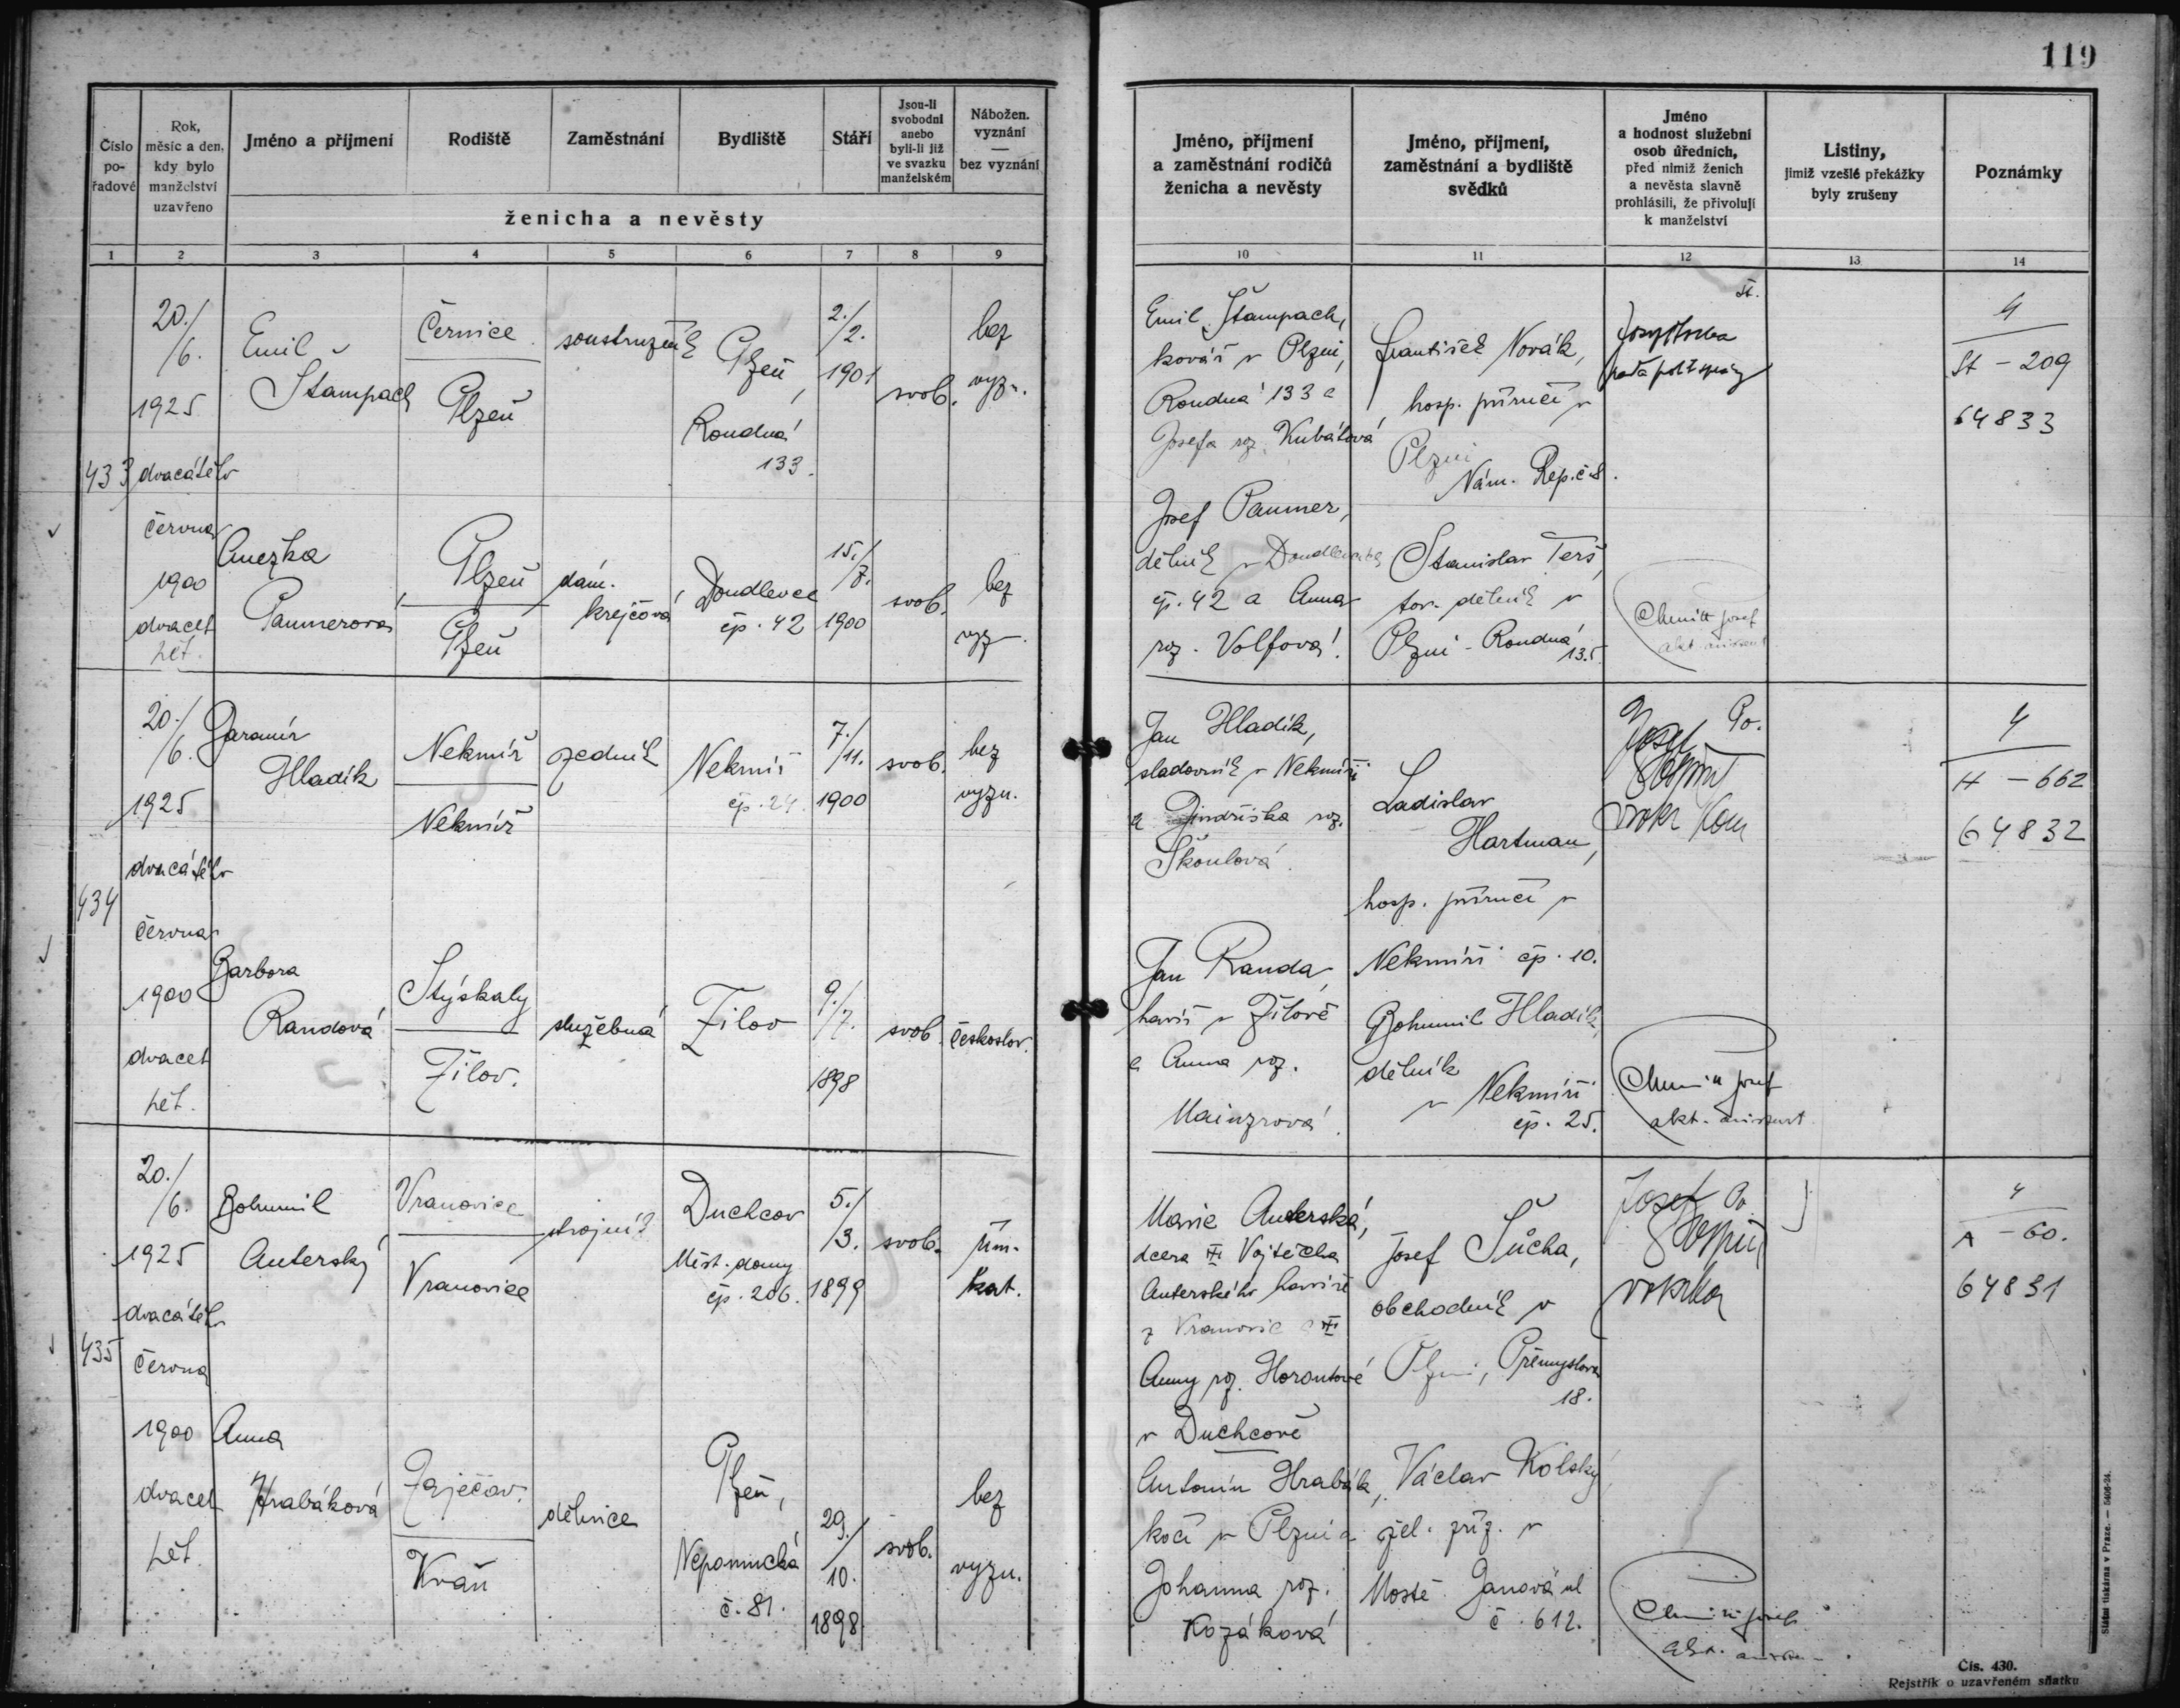 119
Číslo pořadové
Rok, měsíc a den, kdy bylo manželství uzavřeno
Jméno a příjmení
Rodiště
Zaměstnání
Bydliště
Stáří
Jsou-li svobodni anebo byli-li již ve svazku manželském
Nábožen. vyznání — bez vyznání
ženicha a nevěsty
Jméno, příjmení a zaměstnání rodičů ženicha a nevěsty
Jméno, příjmení, zaměstnání a bydliště svědků
Jméno a hodnost služební osob úředních, před nimiž ženich a nevěsta slavně prohlásili, že přivolují k manželství
Listiny, jimiž vzešlé překážky byly zrušeny
Poznámky
1 2 3 4 5 6 7 8 9 10 11 12 13 14
433
20./6.
1925
dvacátého
června
1900
dvacet
pět.
Emil
Štampach
Černice
Plzeň
soustružník
Plzeň,
Roudná
133.
2./2.
1901
svob.
bez
vyzn.
Emil Štampach,
kovář v Plzni,
Roudná 133 a
Josefa roz. Kubátová
František Novák,
hosp. příručí v
Plzni
Nám. Rep. č. 8.
St.
4
St - 209
64833
Anežka
Paumerová
Plzeň
Plzeň
dám.
krejčová
Doudlevce
čp. 42
15./7.
1900
svob.
bez
vyz.
Josef Paumer,
dělník v Doudlevcích
čp. 42 a Anna
roz. Volfová.
Stanislav Terš,
tov. dělník v
Plzni - Roudná
135.
Josef
akt. asistent
434
20./6.
1925
dvacátého
června
1900
dvacet
pět.
Jaromír
Hladík
Nekmíř
Nekmíř
zedník
Nekmíř
čp. 24.
7./11.
1900
svob.
bez
vyzn.
Jan Hladík,
sladovník v Nekmíři
a Jindřiška roz.
Škoulová.
Ladislav
Hartman,
hosp. příručí v
Nekmíři čp. 10.
Po.
Josef
4
H - 662
64832
Barbora
Randová
Stýskaly
Žilov.
služebná
Žilov
9./7.
1898
svob.
českoslov.
Jan Randa,
havíř v Žilově
a Anna roz.
Mainzrová.
Bohumil Hladík,
dělník
v Nekmíři
čp. 25.
Josef
akt. asistent
435
20./6.
1925
dvacátého
června
1900
dvacet
pět.
Bohumil
Auterský
Vranovice
Vranovice
strojník
Duchcov
Měst. domy
čp. 206.
5./3.
1899
svob.
řím.
kat.
Marie Auterská,
dcera Vojtěcha
Auterského havíře
z Vranovic a
Anny roz. Horoutové
v Duchcově
Josef Sůcha,
obchodník v
Plzni, Přemyslova
18.
Josef Po
4
A - 60.
64831
Anna
Hrabáková
Zaječov.
Kváň
dělnice
Plzeň,
Nepomucká
č. 81.
29./10.
1898
svob.
bez
vyzn.
Antonín Hrabák,
kočí v Plzni a
Johanna roz.
Kozáková
Václav Kolský,
žel. zříz. v
Mostě Janová ul
č. 612.
Josef
Státní tiskárna v Praze. — 5406-24.
Čís. 430.
Rejstřík o uzavřeném sňatku